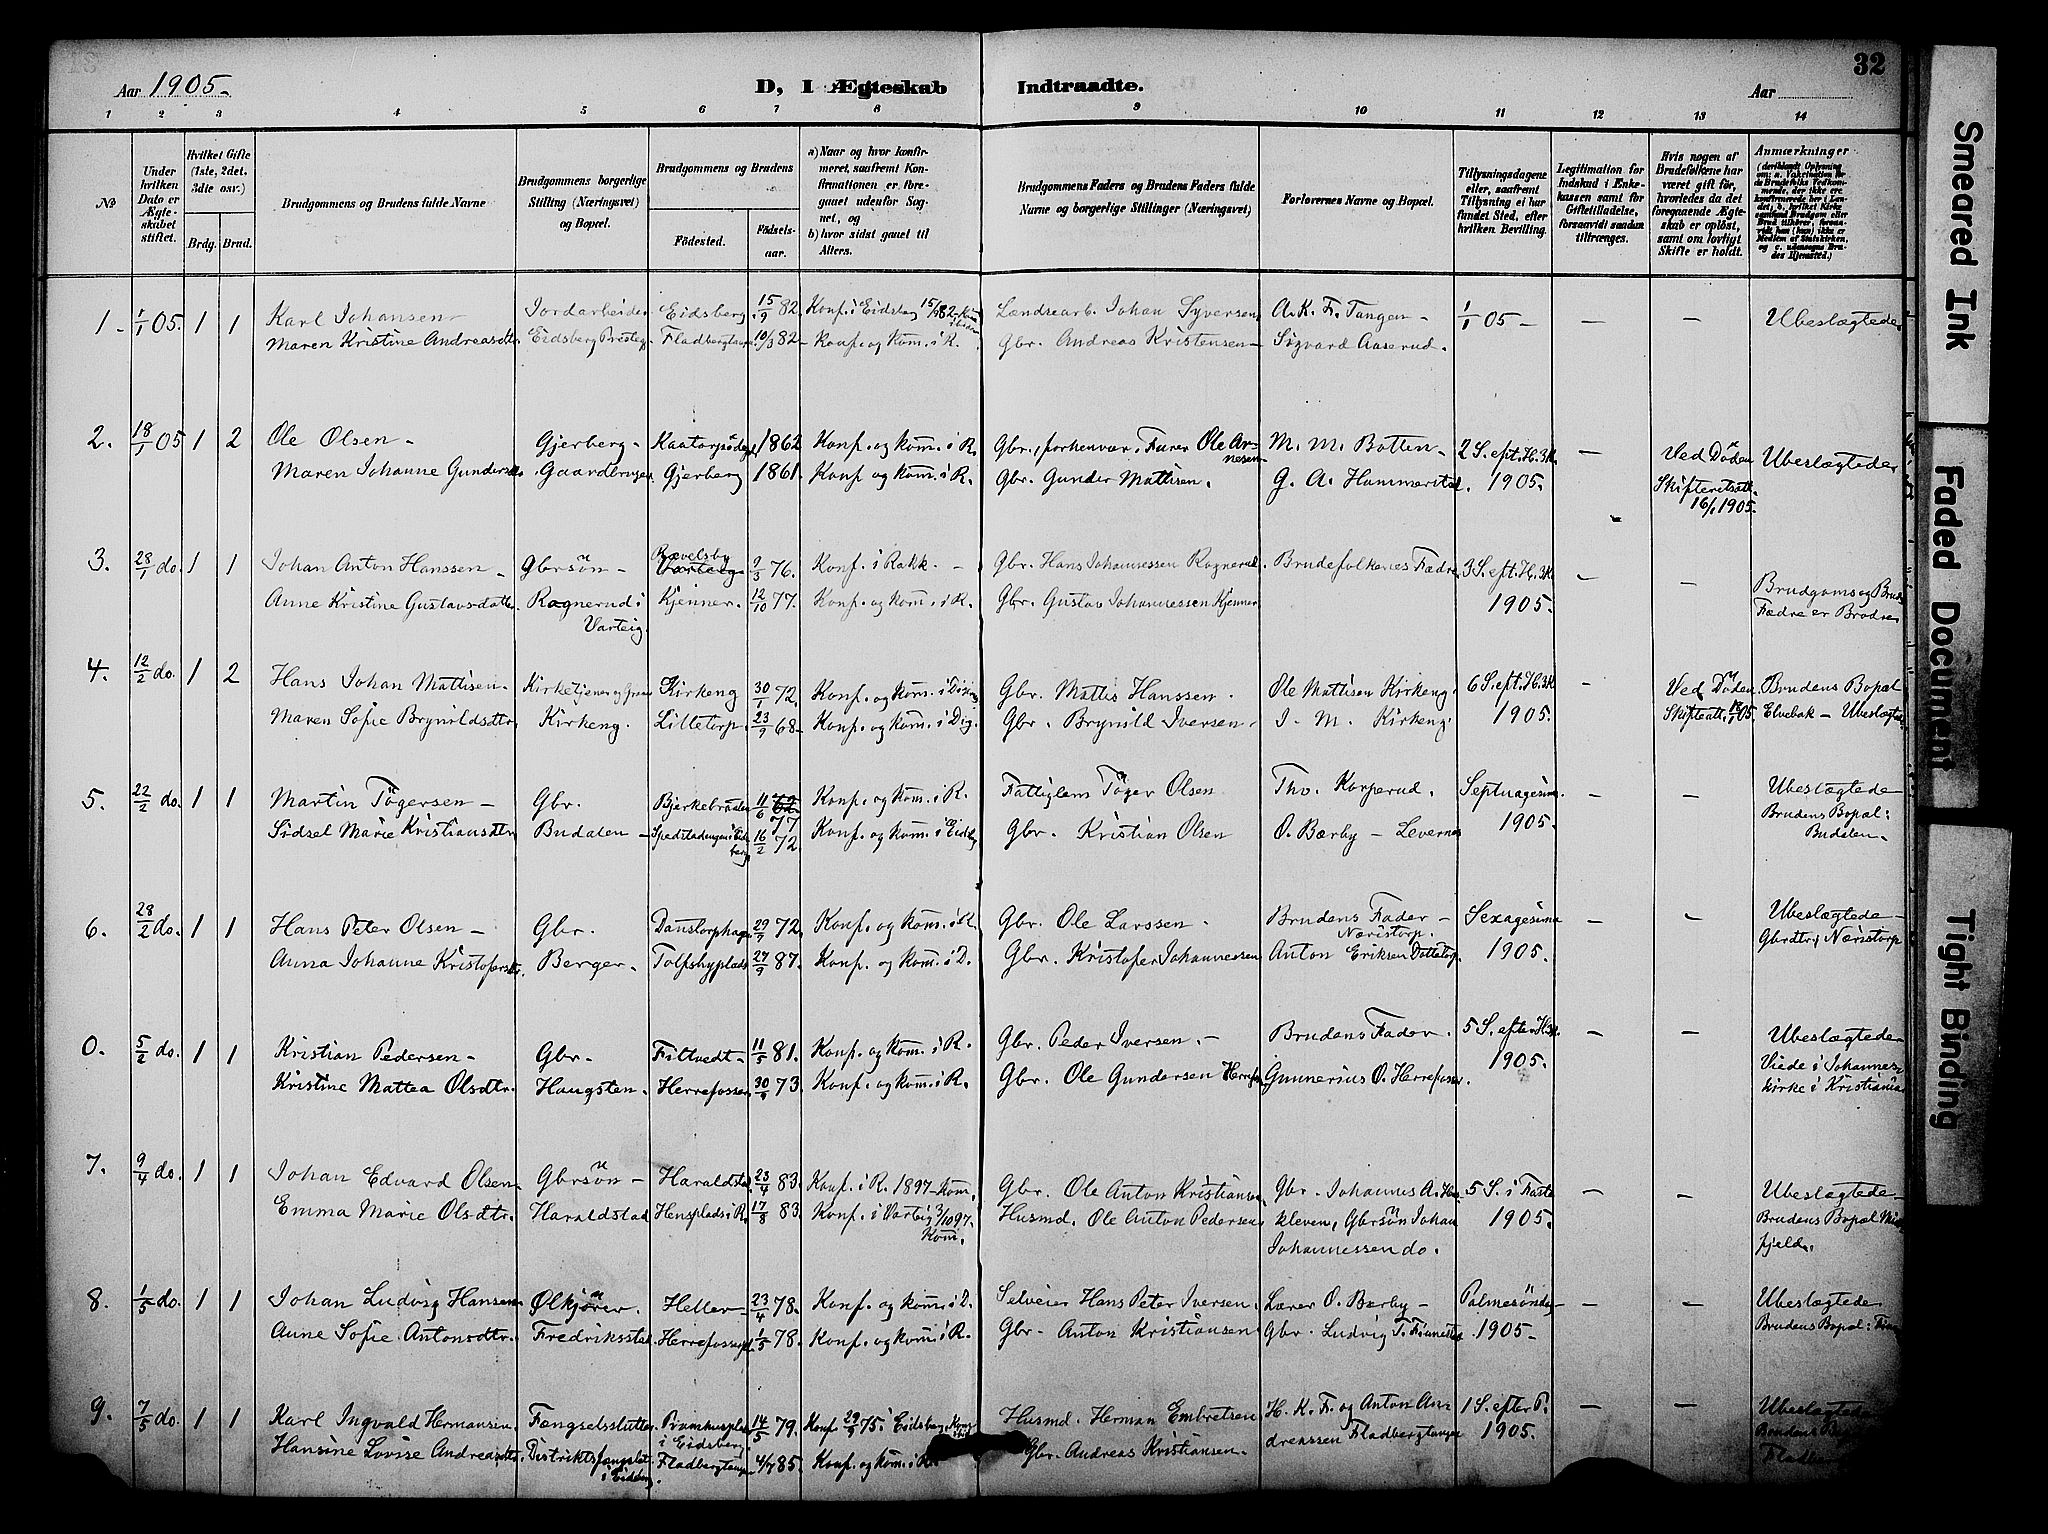 Aar 1905.
D, I Ægteskab Indtraadte.
Aar
32
1 2 3 4 5 6 7 8 9 10 11 12 13 14
№
Under hvilken Dato er Ægteskabet stiftet.
Hvilket Gifte (1ste, 2det, 3die osv.)
Brdg. Brud.
Brudgommens og Brudens fulde Navne
Brudgommens borgerlige Stilling (Næringsvei) og Bopæl.
Brudgommens og Brudens
Födested. Födselsaar.
a) Naar og hvor konfirmeret, saafremt Konfirmationen er foregaaet udenfor Sognet, og
b) hvor sidst gaaet til Alters.
Brudgommens Faders og Brudens Faders fulde Navne og borgerlige Stillinger (Næringsvei)
Forlovernes Navne og Bopæl.
Tillysningsdagene eller, saafremt Tillysning ei har fundet Sted, efter hvilken Bevilling.
Legitimation for Indskud i Enkekassen samt for Giftetilladelse, forsaavidt saadan tiltrænges.
Hvis nogen af Brudefolkene har været gift før, hvorledes da det foregaaende Ægteskab er opløst, samt om lovligt Skifte er holdt.
Anmærkninger
1. 1/1 05. 1 1 Karl Johansen Jordarbeider Eidsberg 15/9 82. Konf. i Eidsberg Landsearb. Johan Syversen A. K. F. Tangen 1/1 05 – – – Ubeslægtede
Maren Kristine Andreasdtr. Eidsberg Prestegj. Fladbergtangen 10/3 82 Konf. og kom. i R. Gbr. Andreas Kristensen Sigvard Aaserud.
2. 18/1 05 1 2 Ole Olsen Gjerberg Kaatorpsödeg. 1862 Konf. og kom. i R. Gbr., forhenvær. Furer Ole Arnesen M. M. Botten 2 S. eft. H. 3 K. – Ved Döden Ubeslægtede
Maren Johanne Gundersdtr. Gaardbruger Gjerberg 1861. Konf. og kom. i R. Gbr. Gunder Mattisen. G. A. Hammerstad. 1905. Skifteretsatt. 16/1 1905.
3. 28/1 do. 1 1 Johan Anton Hanssen Gbrsön Rævelsby 9/3 76. Konf. i Rakk. Gbr. Hans Johannessen Rognerud. Brudefolkenes Fædre 3 S. eft. H. 3 K. – –
Anne Kristine Gustavsdatter Rognerud i Varteig. Kjenner. 12/10 77. Konf. og kom. i R. Gbr. Gustav Johannessen Kjenner 1905. Brudgoms og Bruds Fædre er Brödre
4. 12/2 do. 1 2 Hans Johan Mattisen Kirketjener og Kirkeng 30/1 72. Konf. og kom. i Gbr. Mattis Hanssen. Ole Mattisen Kirkeng. 6 S. eft. H. 3 K. – Ved Döden Brudens Bopæl
Maren Sofie Brynildsdtr. Kirkeng. Lilletorp. 23/9 68. Konf. og kom. i Gbr. Brynild Iversen. J. M. Kirkeng. 1905. Skifteatt. 18/1 05. Elvebak – Ubeslægtede
5. 22/2 do. 1 1 Martin Tögersen Gbr. Bjerkebraaten 11/6 77 Konf. og kom. i R. Fattiglem Töger Olsen Tho. Korperud. Septuagesima – – Ubeslægtede
Sidsel Marie Kristiansdtr. Budalen Spedstadengen i Eidsberg 16/2 72. Konf. og kom. i Eidsb. Gbr. Kristian Olsen O. Bærby – Levernes 1905. Brudens Bopæl: Budalen
6. 28/2 do. 1 1 Hans Peter Olsen Gbr. Danstorphagen 29/9 72. Konf. og kom. i Gbr. Ole Larssen Brudens Fader Næristorp. Sexagesima – – Ubeslægtede
Anna Johanne Kristofersdtr. Berger. Tolfsbyplads 24/9 87. Konf. og kom. i D. Gbr. Kristofer Johannessen Anton Eriksen Dottetorp 1905. Gbrdtr. i Næristorp
0. 5/2 do. 1 1 Kristian Pedersen Gbr. Filtvedt 11/5 81. Konf. og kom. i R. Gbr. Peder Iversen. Brudens Fader. 5 S. efter H. 3 K. – – Ubeslægtede
Kristine Mattea Olsdtr. Haugsten. Herrefossen. 30/9 73. Konf. og kom. i R. Gbr. Ole Gundersen Herrefos. Gunnerius O. Herrefossen. 1905. Viede i Johanneskirke i Kristiania
7. 9/4 do. 1 1 Johan Edvard Olsen Gbrsön Haraldstad. 23/4 83. Konf. i R. 1897 – Kom. Gbr. Ole Anton Kristiansen Gbr. Johannes A. 5 S. i Faste – – Ubeslægtede
Emma Marie Olsdtr. Haraldstad Hensplads i R. 17/8 83. Konf. i Varteig 3/10 97. Kom. Husmd. Ole Anton Pedersen kleven, Gbrsön Johan Johannessen do. 1905. Brudens Bopæl fjeld.
8. 1/5 do. 1 1 Johan Ludvig Hansen Ølkjörer. Heller 23/4 78. Konf. og kom. i D. Selveier Hans Peter Iversen. Lærer O. Bærby Palmesöndag – – Ubeslægtede
Anne Sofie Antonsdtr. Fredriksstad. Herrefossen 1/5 78. Konf. og kom. i R. Gbr. Anton Kristiansen Gbr. Ludvig T. Finnestad 1905. Brudens Bopæl:
9. 7/5 do. 1 1 Karl Ingvald Hermansen Fængselsslutter i Eidsberg. 14/5 79. Konf. i Eidsberg. Husmd. Herman Embretsen H. K. F. og Anton An- 1 S. efter P. – – Ubeslægtede
Hansine Lovise Andreasdtr. Distriktsfængslet i Eidsberg Fladbergtangen 4/4 85. Konf. og kom. i R. Gbr. Andreas Kristiansen. drenssen Fladbergtangen 1905. Brudens Bopæl
Smeared Ink
Faded Document
Tight Binding